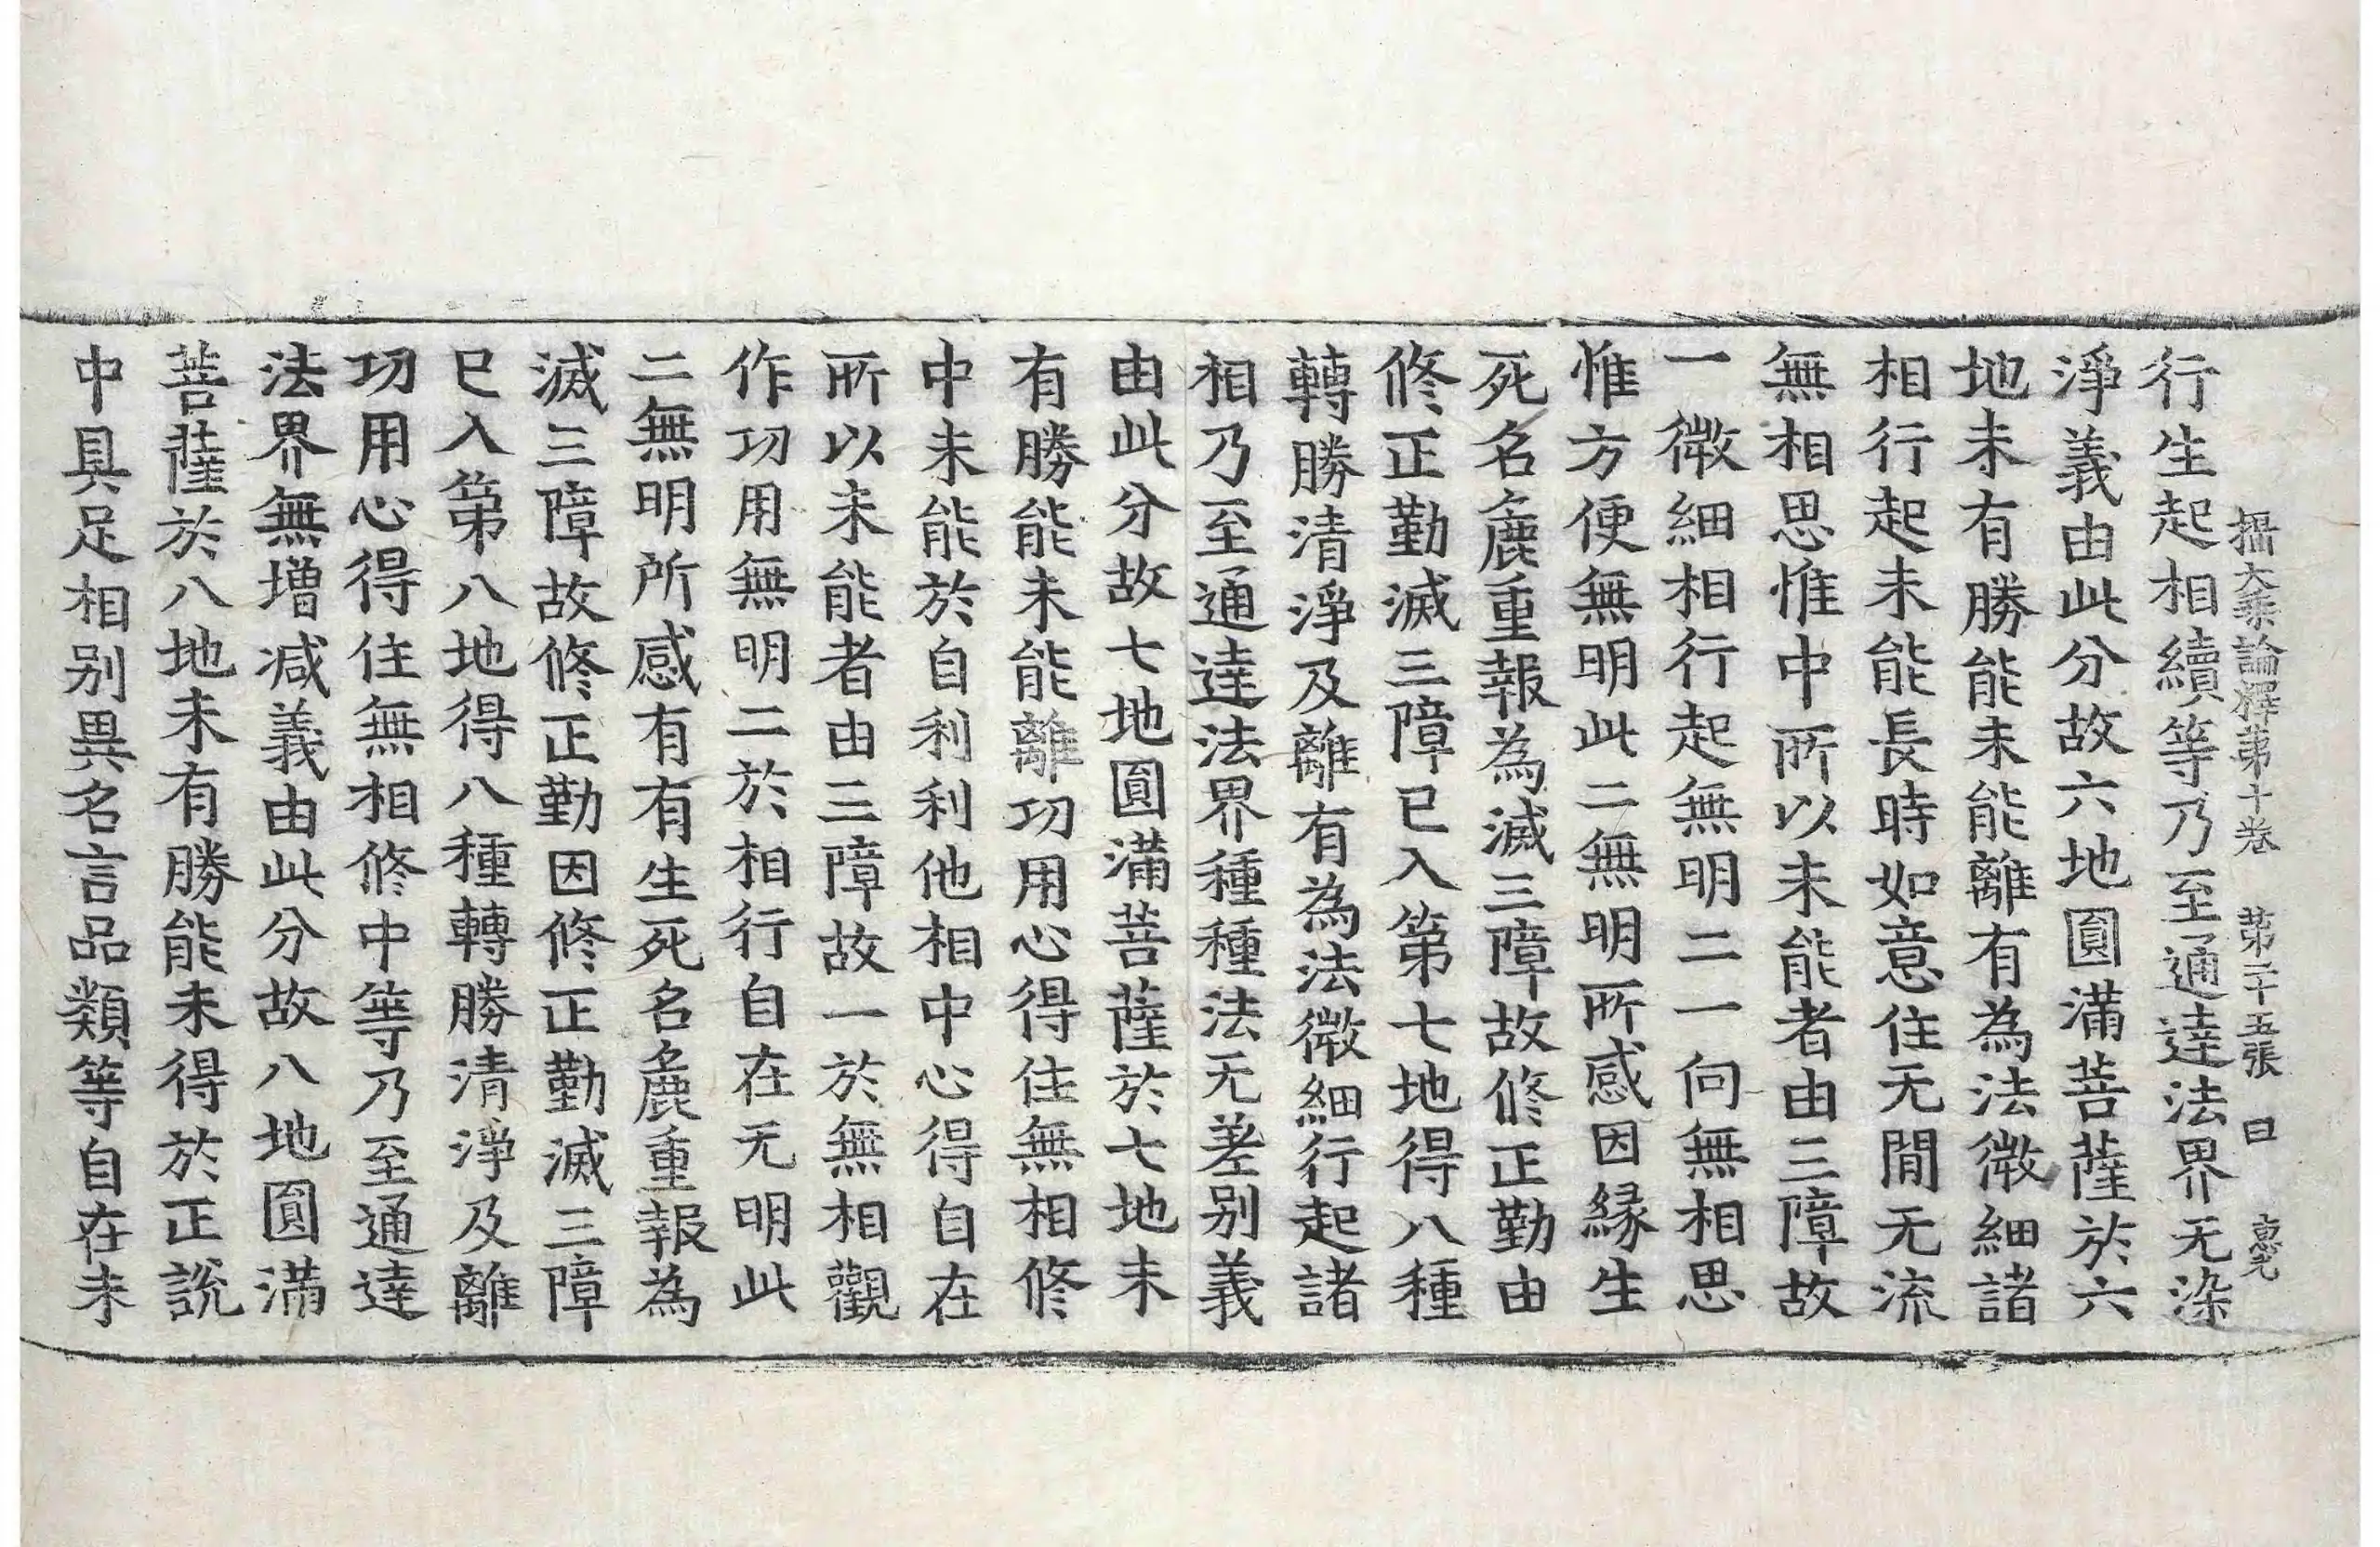 攝大乘論釋第十卷 第二十五張 曰
行生起相續等乃至通達法界无染
淨義由此分故六地圓滿菩薩於六
地未有勝能未能離有為法微細諸
相行起未能長時如意住无閒无流
無相思惟中所以未能者由三障故
一微細相行起無明二一向無相思
惟方便無明此二無明所感因緣生
死名麁重報為滅三障故修正勤由
修正勤滅三障已入第七地得八種
轉勝清淨及離有為法微細行起諸
相乃至通達法界種種法无差別義
由此分故七地圓滿菩薩於七地未
有勝能未能離功用心得住無相修
中未能於自利利他相中心得自在
所以未能者由三障故一於無相觀
作功用無明二於相行自在无明此
二無明所感有有生死名麁重報為
滅三障故修正勤因修正勤滅三障
已入第八地得八種轉勝清淨及離
功用心得住無相修中等乃至通達
法界無增减義由此分故八地圓滿
菩薩於八地未有勝能未得於正說
中具足相別異名言品類等自在未